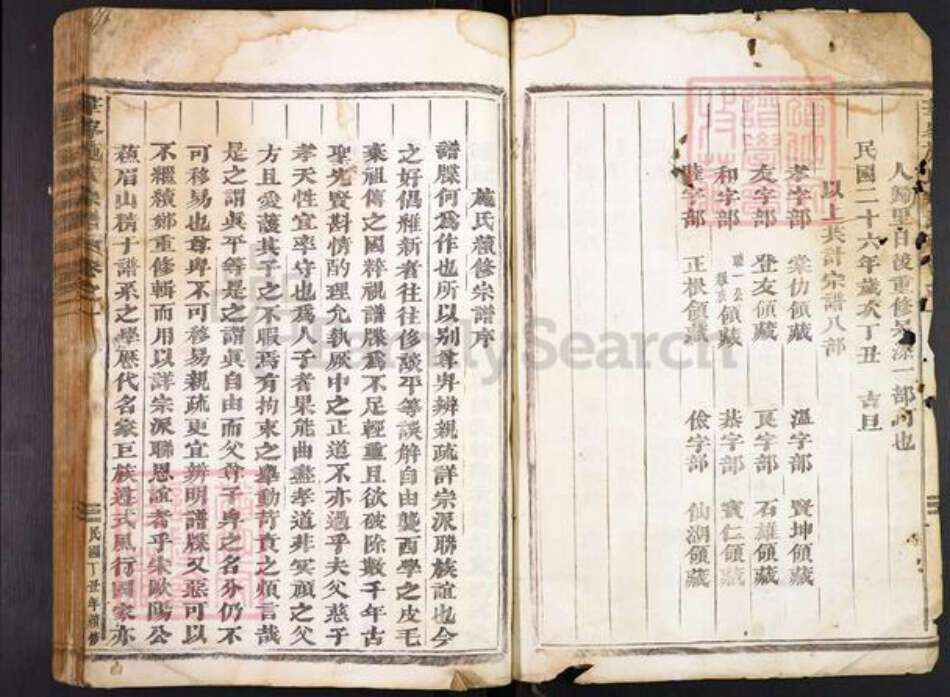 人歸里日後重修
民國二十六年歲次丁丑 吉旦
以上共計宗譜八部
孝字部 棠仂領藏 溫字部 賢坤領藏
友字部 登友領藏 良字部 石雄領藏
和字部 領藏 恭字部 賓仁領藏
睦字部 正根領藏 儉字部 仙湖領藏
施氏續修宗譜序
譜牒何爲作也所以別尊卑辨親疏詳宗派聯族誼也今
之好倡維新者往往侈談平等誤解自由襲西學之皮毛
棄祖傳之國粹視譜牒爲不足輕重且欲破除數千年古
聖先賢斟情酌理允執厥中之正道不亦過乎夫父慈子
孝天性宜率守也爲人子者果能曲盡孝道非冥頑之父
方且愛護其子之不暇焉有拘束之舉動苛責之煩言哉
是之謂眞平等是之謂眞自由而父尊子卑之名分仍不
可移易也尊卑不可移易親疏更宜辨明譜牒又惡可以
不繼續鄭重修輯而用以詳宗派聯恩誼者乎朱歐陽公
蘇眉山精于譜系之學歷代名家巨族遵式風行國家亦
民國丁丑年續修
FamilySearch